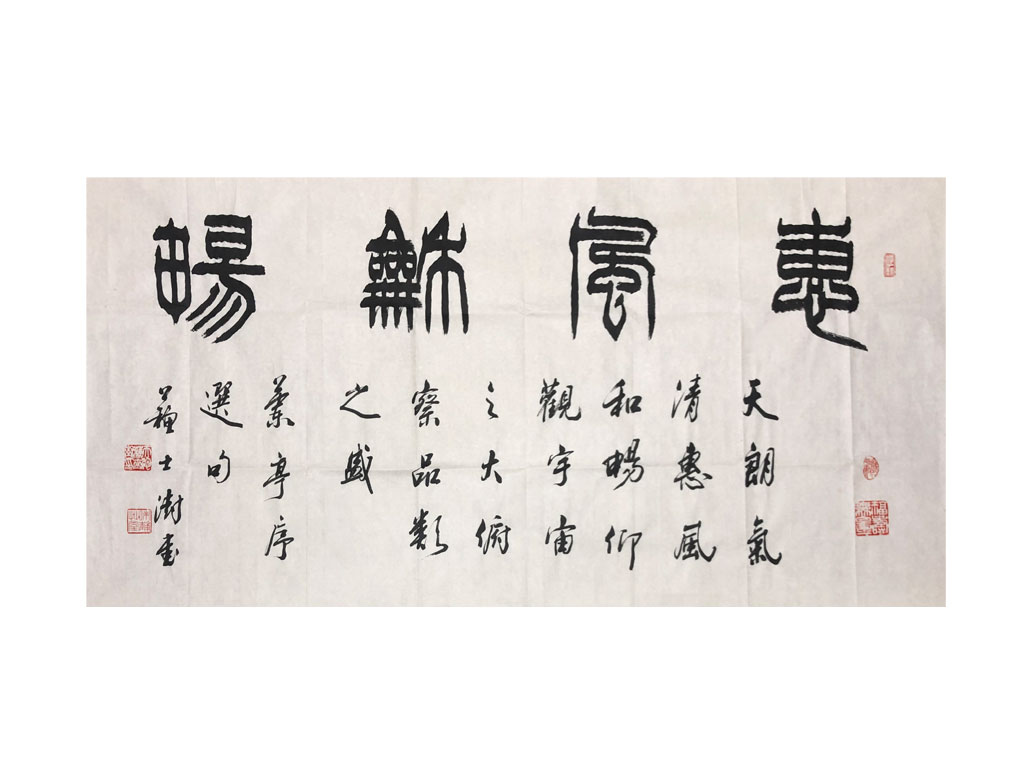 惠風龢暢
天朗氣
清惠風
和暢仰
觀宇宙
之大俯
察品類
之盛
蘭亭序
選句
蘇士澍書